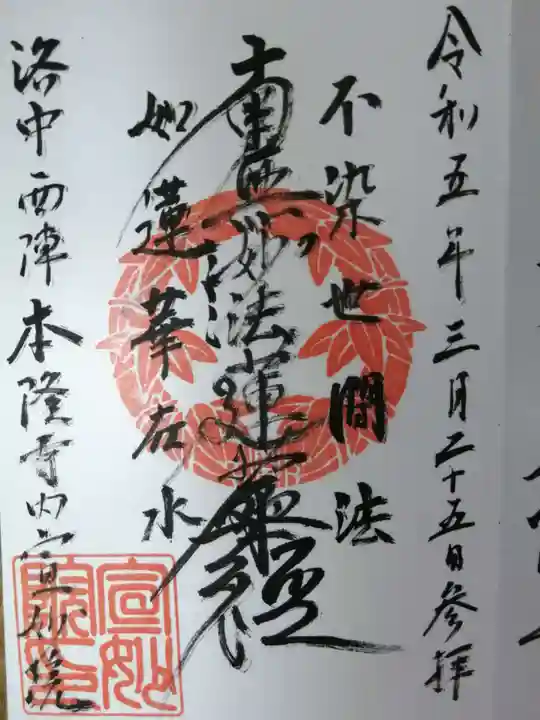 令和五年三月二十五日参拝
不染世間法
南無妙法蓮華経
如蓮華在水
洛中西陣本隆寺内宣妙院
宣妙
院